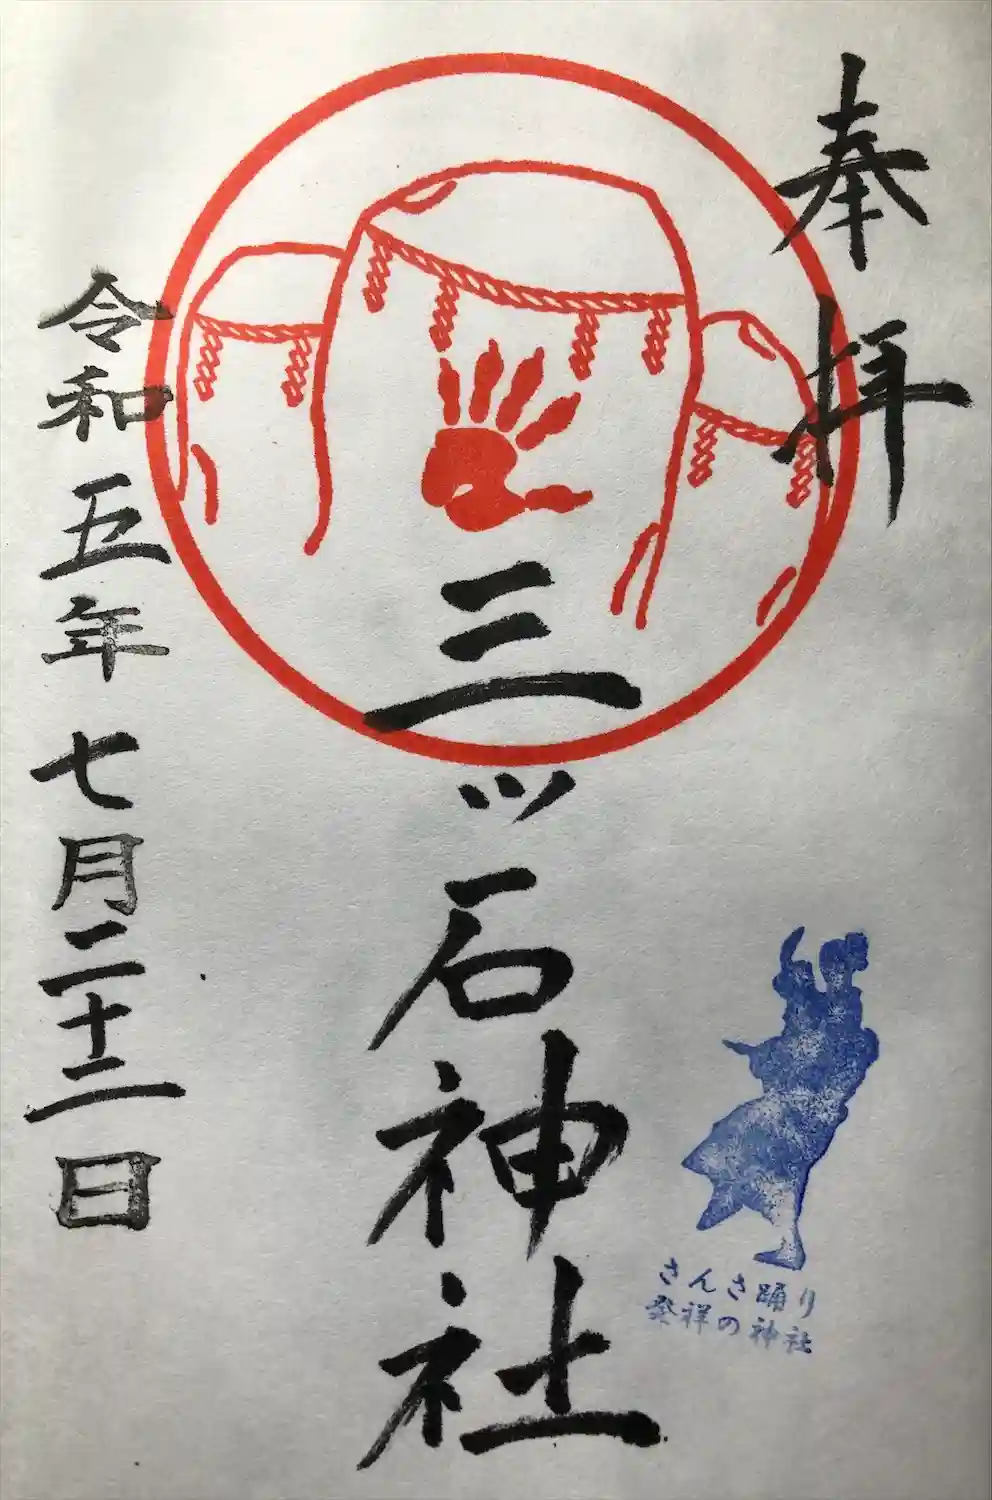 奉拝
三ツ石神社
令和五年七月二十二日
さんさ踊り
発祥の神社